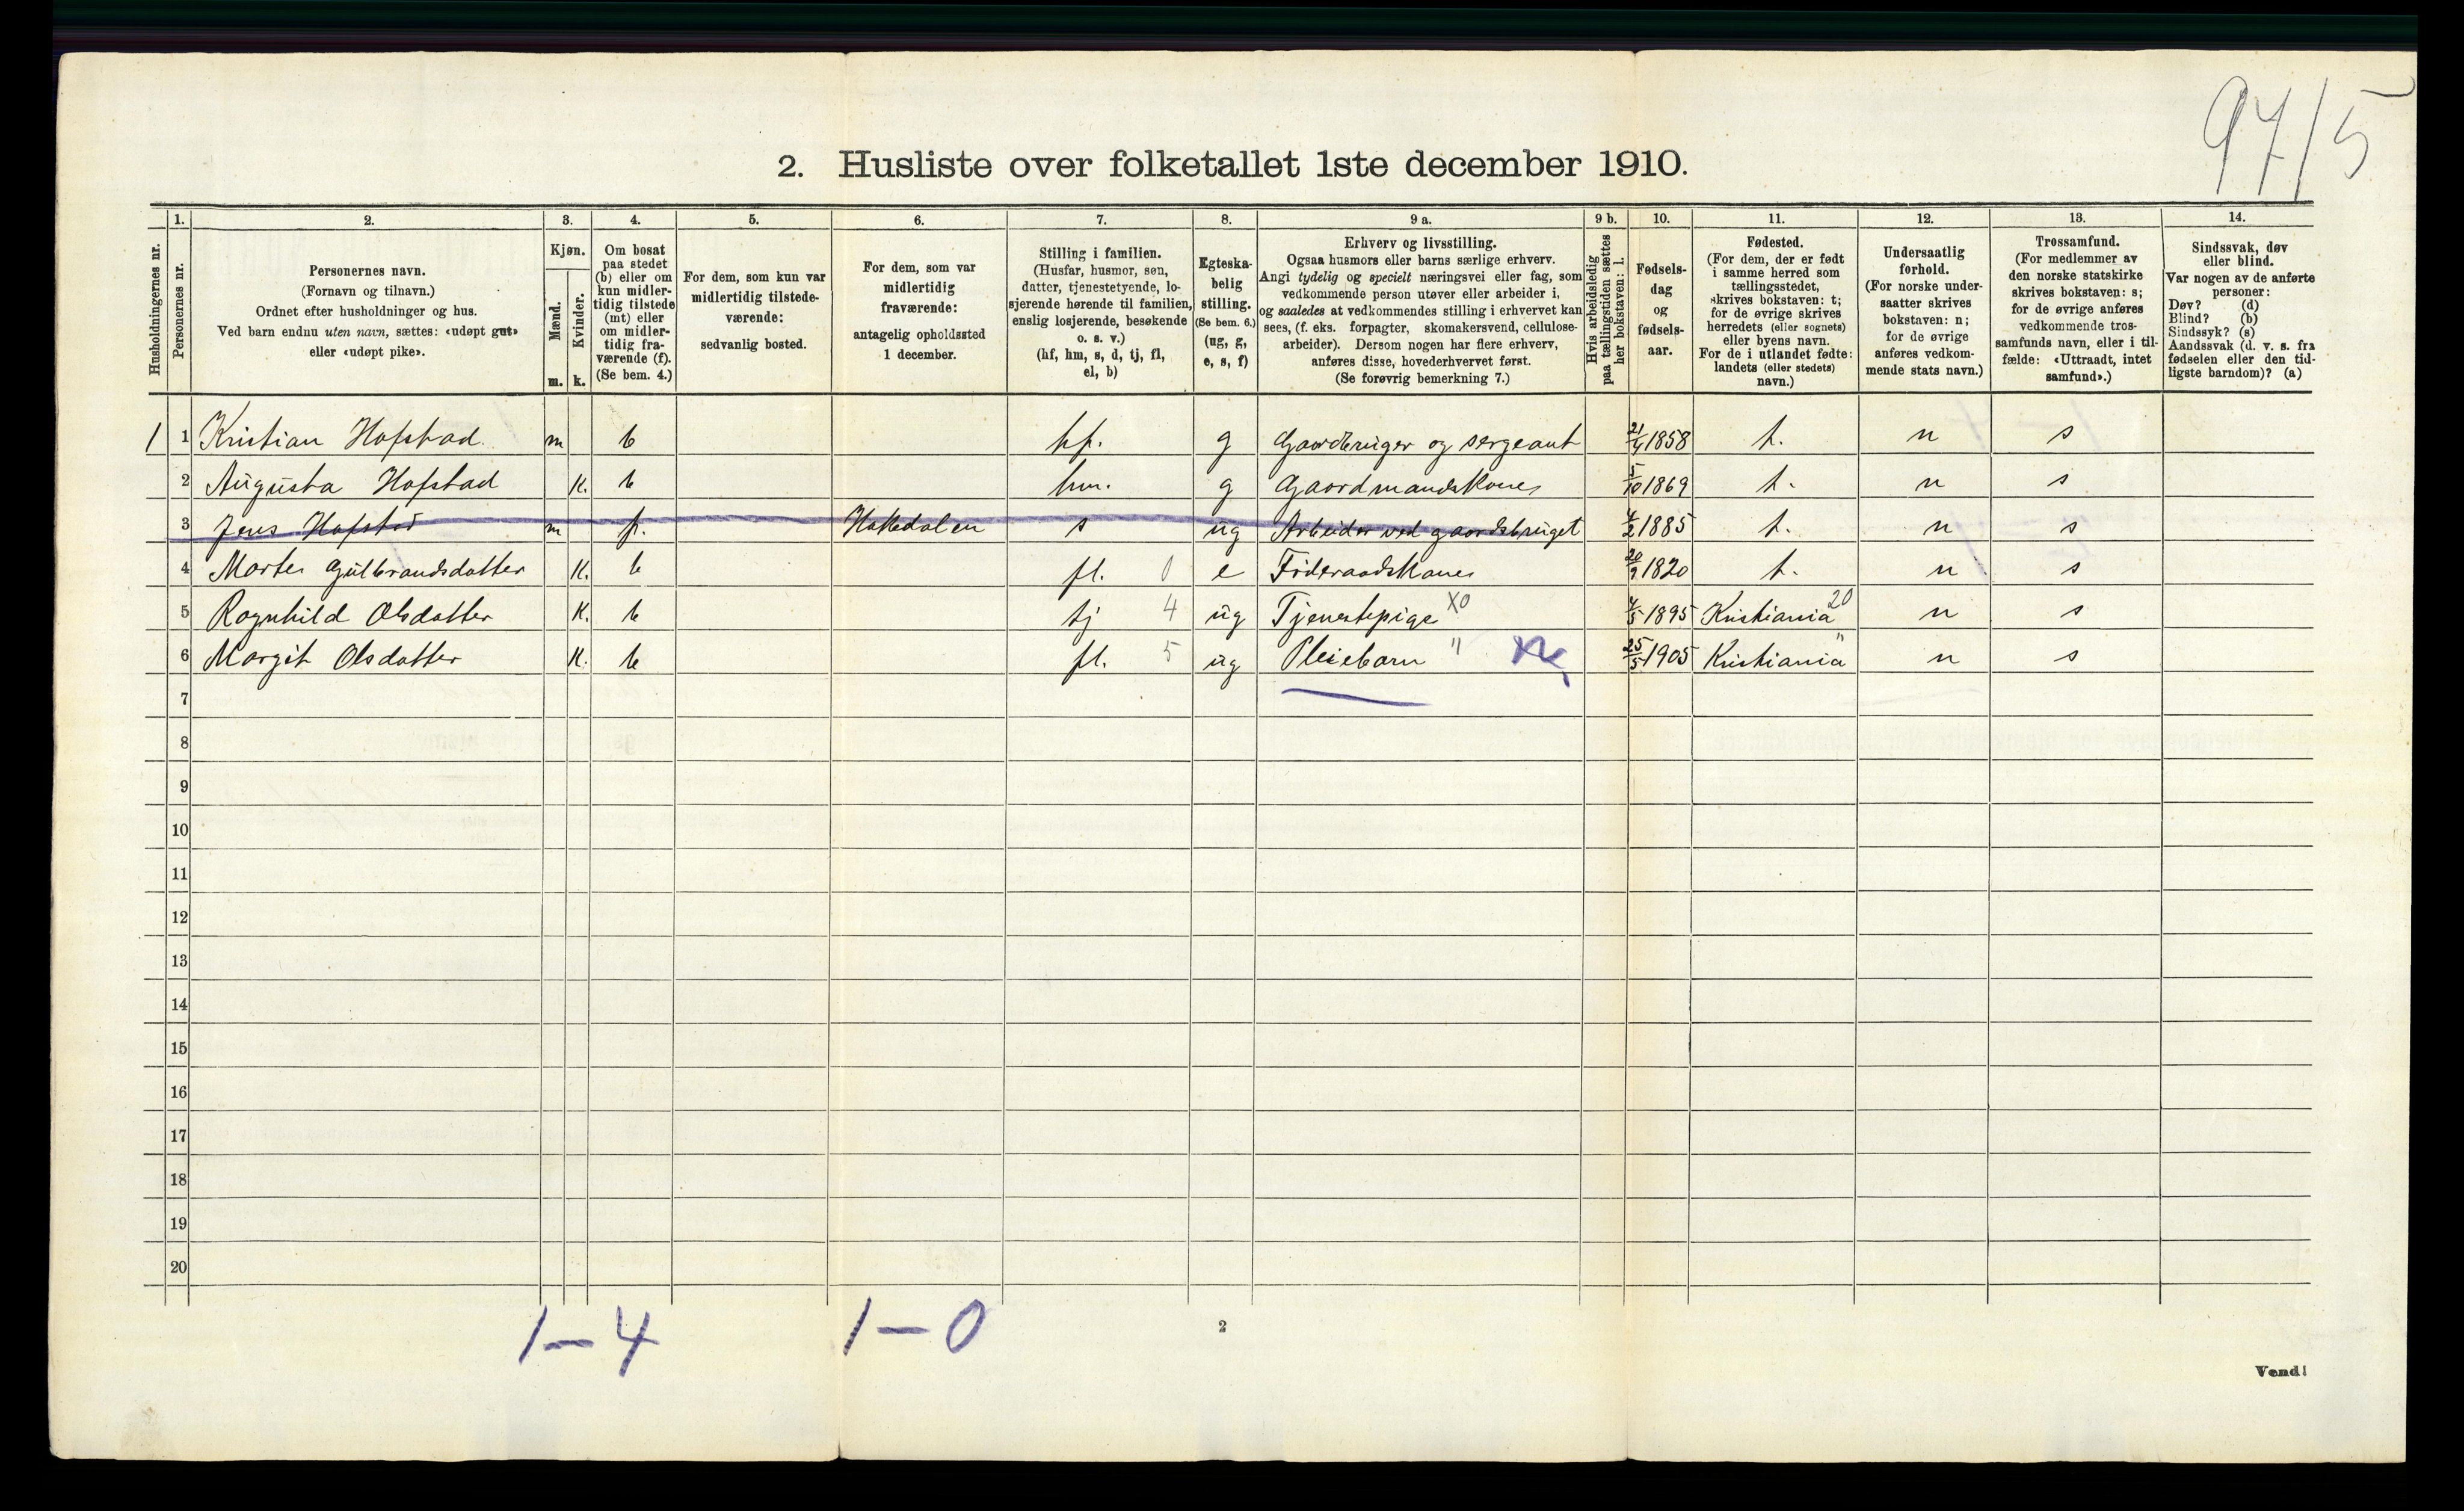 97/5
2. Husliste over folketallet 1ste december 1910.
Husholdningernes nr.
1.
Personernes nr.
2.
Personernes navn.
(Fornavn og tilnavn.)
Ordnet efter husholdninger og hus.
Ved barn endnu uten navn, sættes: «udøpt gut»
eller «udøpt pike».
3.
Kjøn.
Mænd.
m.
Kvinder.
k.
4.
Om bosat
paa stedet
(b) eller om
kun midler-
tidig tilstede
(mt) eller
om midler-
tidig fra-
værende (f).
(Se bem. 4.)
5.
For dem, som kun var
midlertidig tilstede-
værende:
sedvanlig bosted.
6.
For dem, som var
midlertidig
fraværende:
antagelig opholdssted
1 december.
7.
Stilling i familien.
(Husfar, husmor, søn,
datter, tjenestetyende, lo-
sjerende hørende til familien,
enslig losjerende, besøkende
o. s. v.)
(hf, hm, s, d, tj, fl,
el, b)
8.
Egteska-
belig
stilling.
(Se bem. 6.)
(ug, g,
e, s, f)
9 a.
Erhverv og livsstilling.
Ogsaa husmors eller barns særlige erhverv.
Angi tydelig og specielt næringsvei eller fag, som
vedkommende person utøver eller arbeider i,
og saaledes at vedkommendes stilling i erhvervet kan
sees, (f. eks. forpagter, skomakersvend, cellulose-
arbeider). Dersom nogen har flere erhverv,
anføres disse, hovederhvervet først.
(Se forøvrig bemerkning 7.)
9 b.
Hvis arbeidsledig
paa tællingstiden sættes
her bokstaven: l.
10.
Fødsels-
dag
og
fødsels-
aar.
11.
Fødested.
(For dem, der er født
i samme herred som
tællingsstedet,
skrives bokstaven: t;
for de øvrige skrives
herredets (eller sognets)
eller byens navn.
For de i utlandet fødte:
landets (eller stedets)
navn.)
12.
Undersaatlig
forhold.
(For norske under-
saatter skrives
bokstaven: n;
for de øvrige
anføres vedkom-
mende stats navn.)
13.
Trossamfund.
(For medlemmer av
den norske statskirke
skrives bokstaven: s;
for de øvrige anføres
vedkommende tros-
samfunds navn, eller i til-
fælde: «Uttraadt, intet
samfund».)
14.
Sindssvak, døv
eller blind.
Var nogen av de anførte
personer:
Døv? (d)
Blind? (b)
Sindssyk? (s)
Aandssvak (d. v. s. fra
fødselen eller den tid-
ligste barndom)? (a)
1 1 Kristian Hofstad. m b hf. g Gaardbruger og sergeant 21/4 1858 t. n s
2 Augusta Hofstad K. b hm. g Gaardmandskone 5/10 1869 t. n s
3 Jens Hofstad m f. Hakedalen s ug Arbeider ved gaardsbruget 4/2 1885 t. n s
4 Marte Gulbrandsdatter K. b fl. 0 e Føderaadskone 20/9 1820 t. n s
5 Ragnhild Olsdatter K. b tj 4 ug Tjenestepige XO 4/5 1895 Kristiania 20 n s
6 Margit Olsdatter K. b fl. 5 ug Pleiebarn " 25/5 1905 Kristiania " n s
7
8
9
10
11
12
13
14
15
16
17
18
19
20
1-4 1-0
2
Vend!